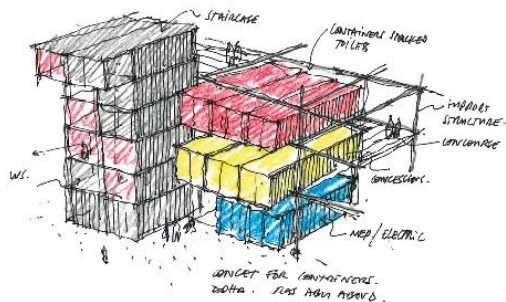 STAIRCASE
CONTAINERS STACKED
TOILETS
SUPPORT
STRUCTURE.
CONCOURSE
CONCESSIONS.
WS.
MEP/ELECTRIC
CONCEPT FOR CONTAINERS.
DOHA. RAS ABU ABOUD.